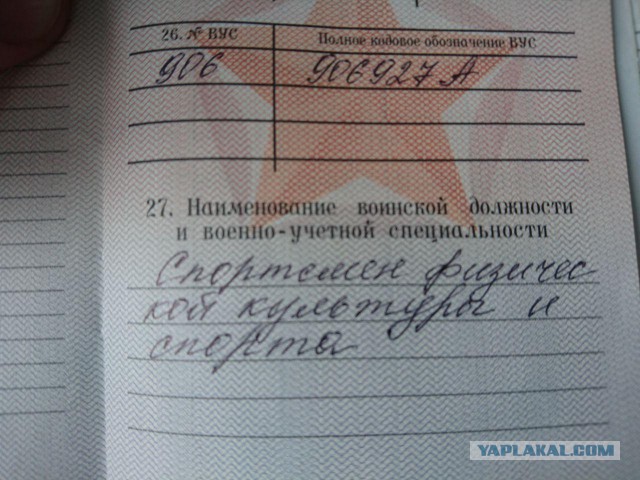 26. № ВУС Полное кодовое обозначение ВУС
906 906927 А
27. Наименование воинской должности
и военно-учетной специальности
Спортсмен физичес-
кой культуры и
спорта
YAPLAKAL.COM